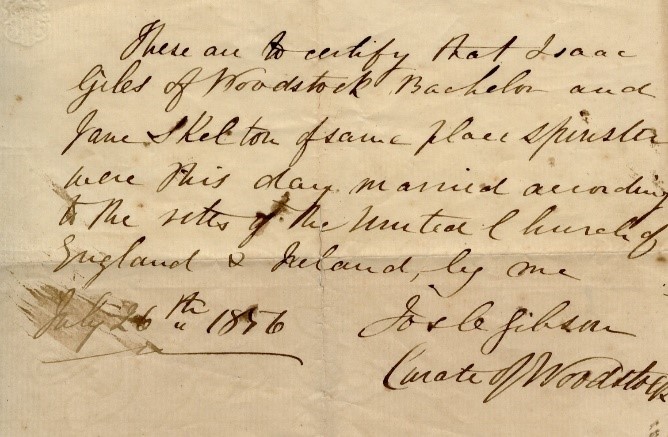 These are to certify that Isaac
Giles of Woodstock Bachelor and
Jane Skelton of same place spinster
were this day married according
to the rites of the United Church of
England & Ireland, by me
July 26th 1856
Jos C Gibson
Curate of Woodstock